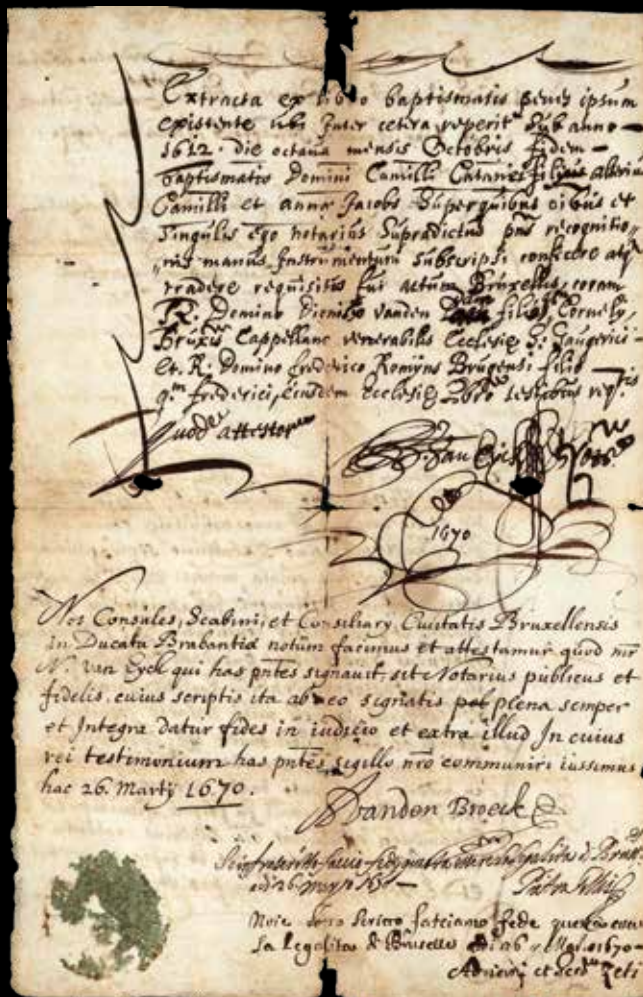 Extracta ex libro baptismatis penes ipsum
existente ubi Inter cetera reperit sub anno —
1612 · die octaua mensis Octobris fidem —
baptismatis Domini Camilli Catanei filius alterius
Camilli et anna Jacobs Superquibus oibus et
Singulis Ego notarius Supradictus pns recognitio-
nis manus Instrumentum Subscripsi conficere atq
tradere requisitus fui actum Bruxellis, coram
R. Domino Dionisio vanden filio Cornely,
Cappellano venerabilis Ecclesię S: Gaugerici –
Et. R: Domino frederico Romÿns Brugensi filio –
qm frederici, Eiusdem Ecclesię testibus
Quod attestor
Van Eyck
1670
Nos Consules, Scabini, et Consiliary, Ciuitatis Bruxellensis
in Ducatu Brabantiæ notum facimus et attestamur quod
N. van Eyck qui has pntes signauit, sit Notarius publicus et
fidelis, cuius scriptis ita ab eo signatis plena semper
et Integra datur fides in iudicio et extra illud In cuius
rei testimonium has pntes sigillo nro communiri iussimus
hac 26. Martÿ 1670.
Vanden Broeck
fede
26
Noie facciamo fede
La Legalità di Bruselle 26 1670 —
et